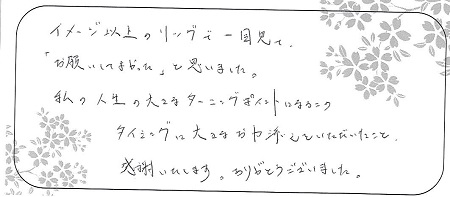 イメージ以上のリングで一目見て、
「お願いしてよかった」と思いました。
私の人生の大きなターニングポイントになるこの
タイミングに大きなお力添えをいただいたこと、
感謝いたします。ありがとうございました。